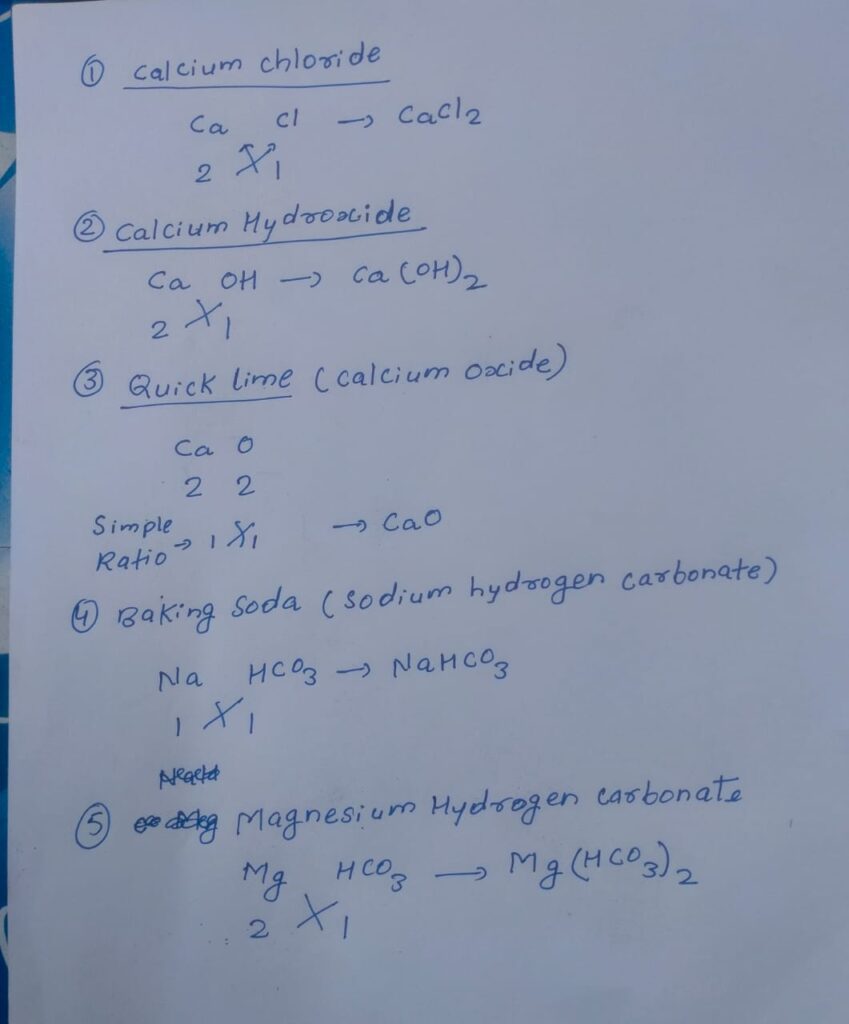 ① Calcium chloride
Ca Cl → CaCl2
2 1
② Calcium Hydroxide
Ca OH → Ca(OH)2
2 1
③ Quick lime (calcium oxide)
Ca O
2 2
Simple
Ratio → 1 1 → CaO
④ Baking Soda (sodium hydrogen carbonate)
Na HCO3 → NaHCO3
1 1
⑤ Magnesium Hydrogen carbonate
Mg HCO3 → Mg(HCO3)2
2 1